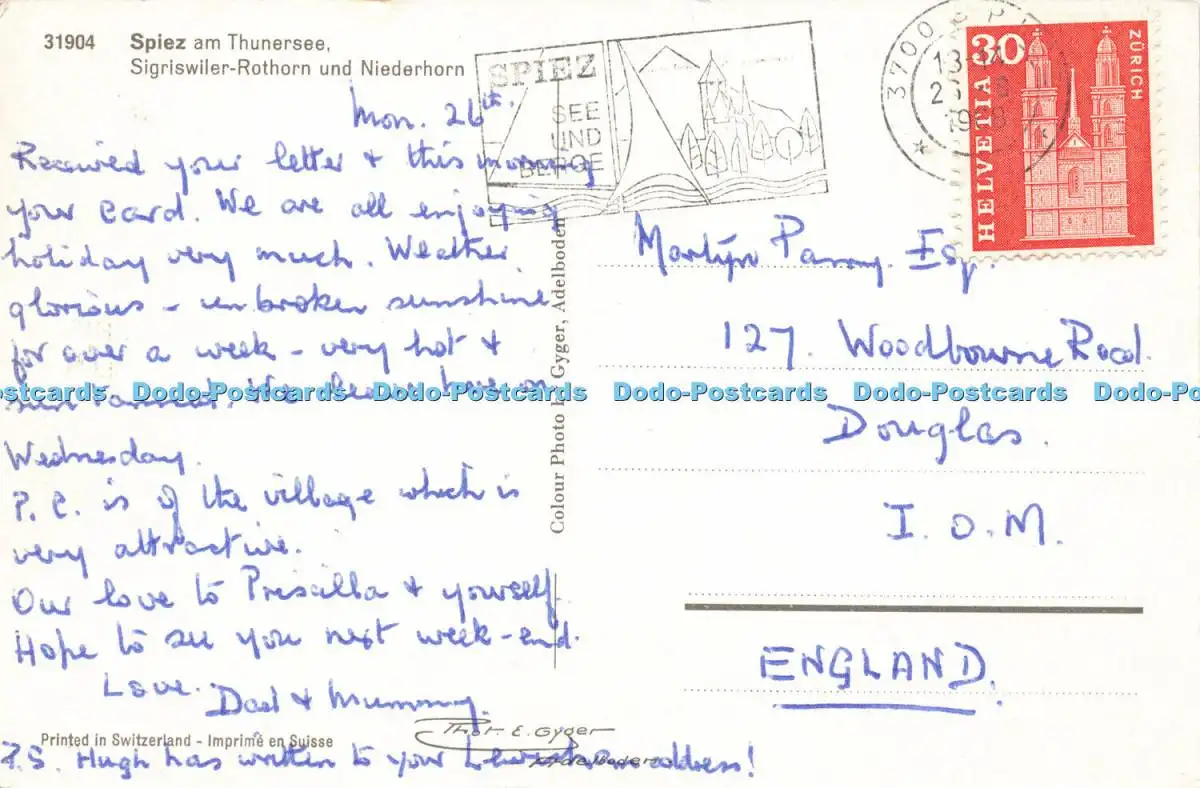 31904 Spiez am Thunersee,
Sigriswiler-Rothorn und Niederhorn
Mon. 26th.
Received your letter & this morning
your card. We are all enjoying
holiday very much. Weather
glorious - unbroken sunshine
for over a week - very hot &
sun tanned. We leave here on
Wednesday.
P.C. is of the village which is
very attractive.
Our love to Priscilla & yourself.
Hope to see you next week-end.
Love. Dad & Mummy.
Printed in Switzerland - Imprimé en Suisse
P.S. Hugh has written to your address!
Colour Photo Gyger, Adelboden
Thor. E. Gyger
Adelboden
SPIEZ
SEE
UND
BERGE
3700 SPIEZ
1968
30
HELVETIA
ZÜRICH
Martyn Parry. Esq.
127. Woodbourne Road.
Douglas.
I.O.M.
ENGLAND.
Dodo-Postcards Dodo-Postcards Dodo-Postcards Dodo-Postcards Dodo-Po